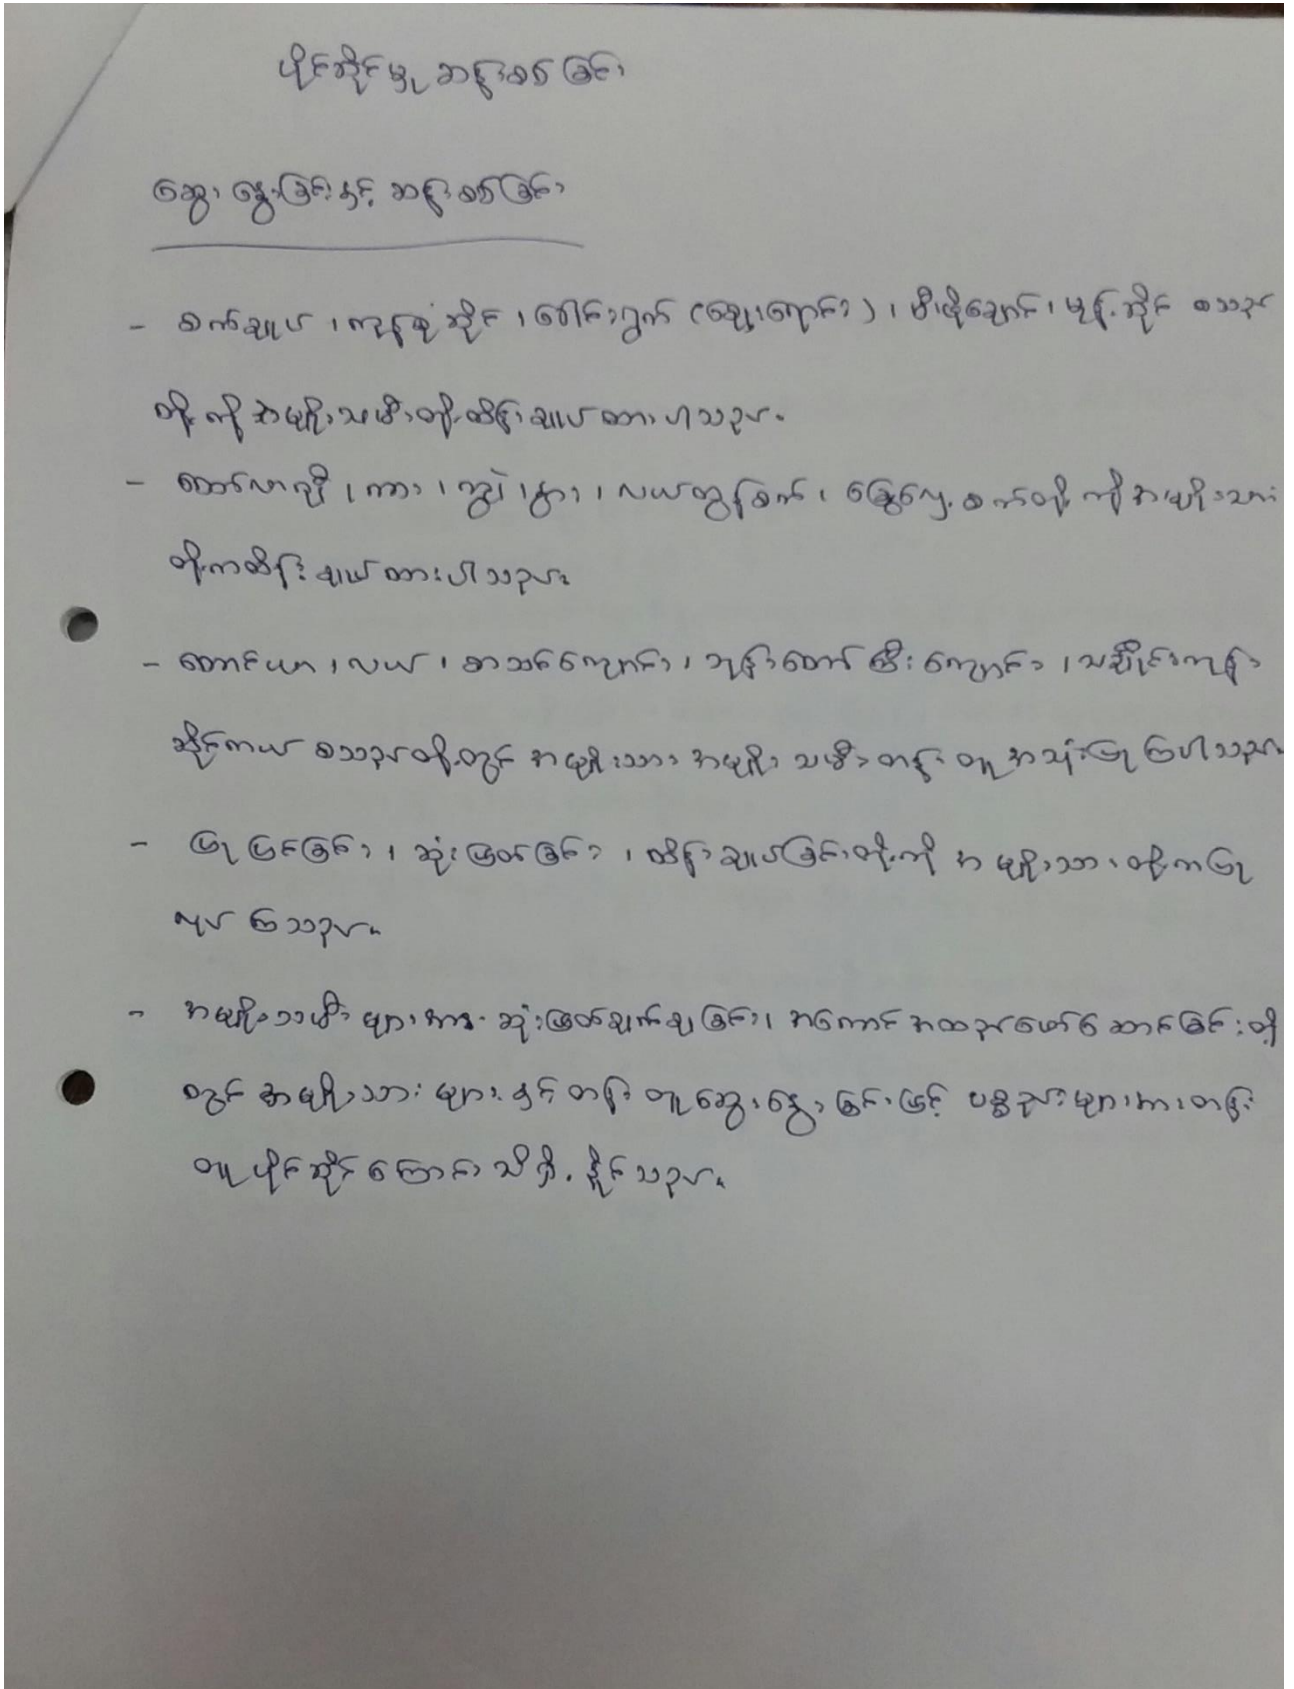 ပိုင်ဆိုင်မှု ဆန်းစစ်ခြင်း
ဆွေးနွေးခြင်းနှင့် ဆန်းစစ်ခြင်း
- စက်ချုပ်၊ ကုန်စုံဆိုင်၊ ခေါင်းရွက် (ဈေးရောင်း)၊ မီးဖိုချောင်၊ မုန့်ဆိုင် စသည်
တို့ကို အမျိုးသမီးတို့ထိန်းချုပ်ထားပါသည်။
- ထော်လာဂျီ၊ ကား၊ ကျွဲ၊ နွား၊ လယ်ထွန်စက်၊ ခြွေလှေ့စက်တို့ကို အမျိုးသား
တို့ကထိန်းချုပ်ထားပါသည်။
- တောင်ယာ၊ လယ်၊ စာသင်ကျောင်း၊ ဘုန်းတော်ကြီးကျောင်း၊ သင်္ချိုင်းကုန်း
ဆိုင်ကယ် စသည်တို့တွင် အမျိုးသား အမျိုးသမီးတန်းတူ အသုံးပြုကြပါသည်။
- ပြုပြင်ခြင်း၊ ဆုံးဖြတ်ခြင်း၊ ထိန်းချုပ်ခြင်းတို့ကို အမျိုးသားတို့ကပြု
လုပ်ကြသည်။
- အမျိုးသမီးများအား ဆုံးဖြတ်ချက်ချခြင်း၊ အကောင်အထည်ဖော်ဆောင်ခြင်းတို့
တွင် အမျိုးသားများနှင့် တန်းတူဆွေးနွေးခြင်းဖြင့် ပစ္စည်းများအားတန်း
တူပိုင်ဆိုင်ကြောင်းသိရှိနိုင်သည်။